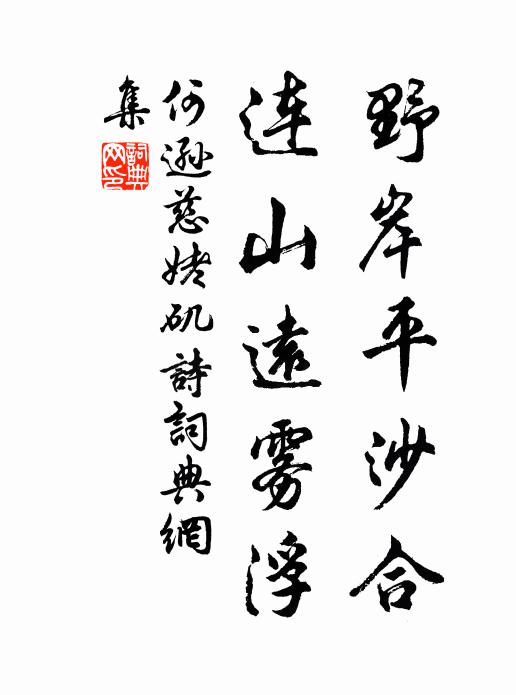 野岸平沙合
連山遠霧浮
何遜慈姥矶詩詞典網
集
詞典網印